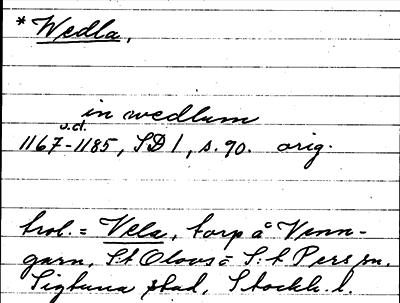 * Wedla,
in wedlum
u.å.
1167-1185, SD 1, s. 90. orig.
trol. = Vela, torp å Venn-
garn, St Olovs = S:t Pers sn,
Sigtuna stad, Stockh. l.